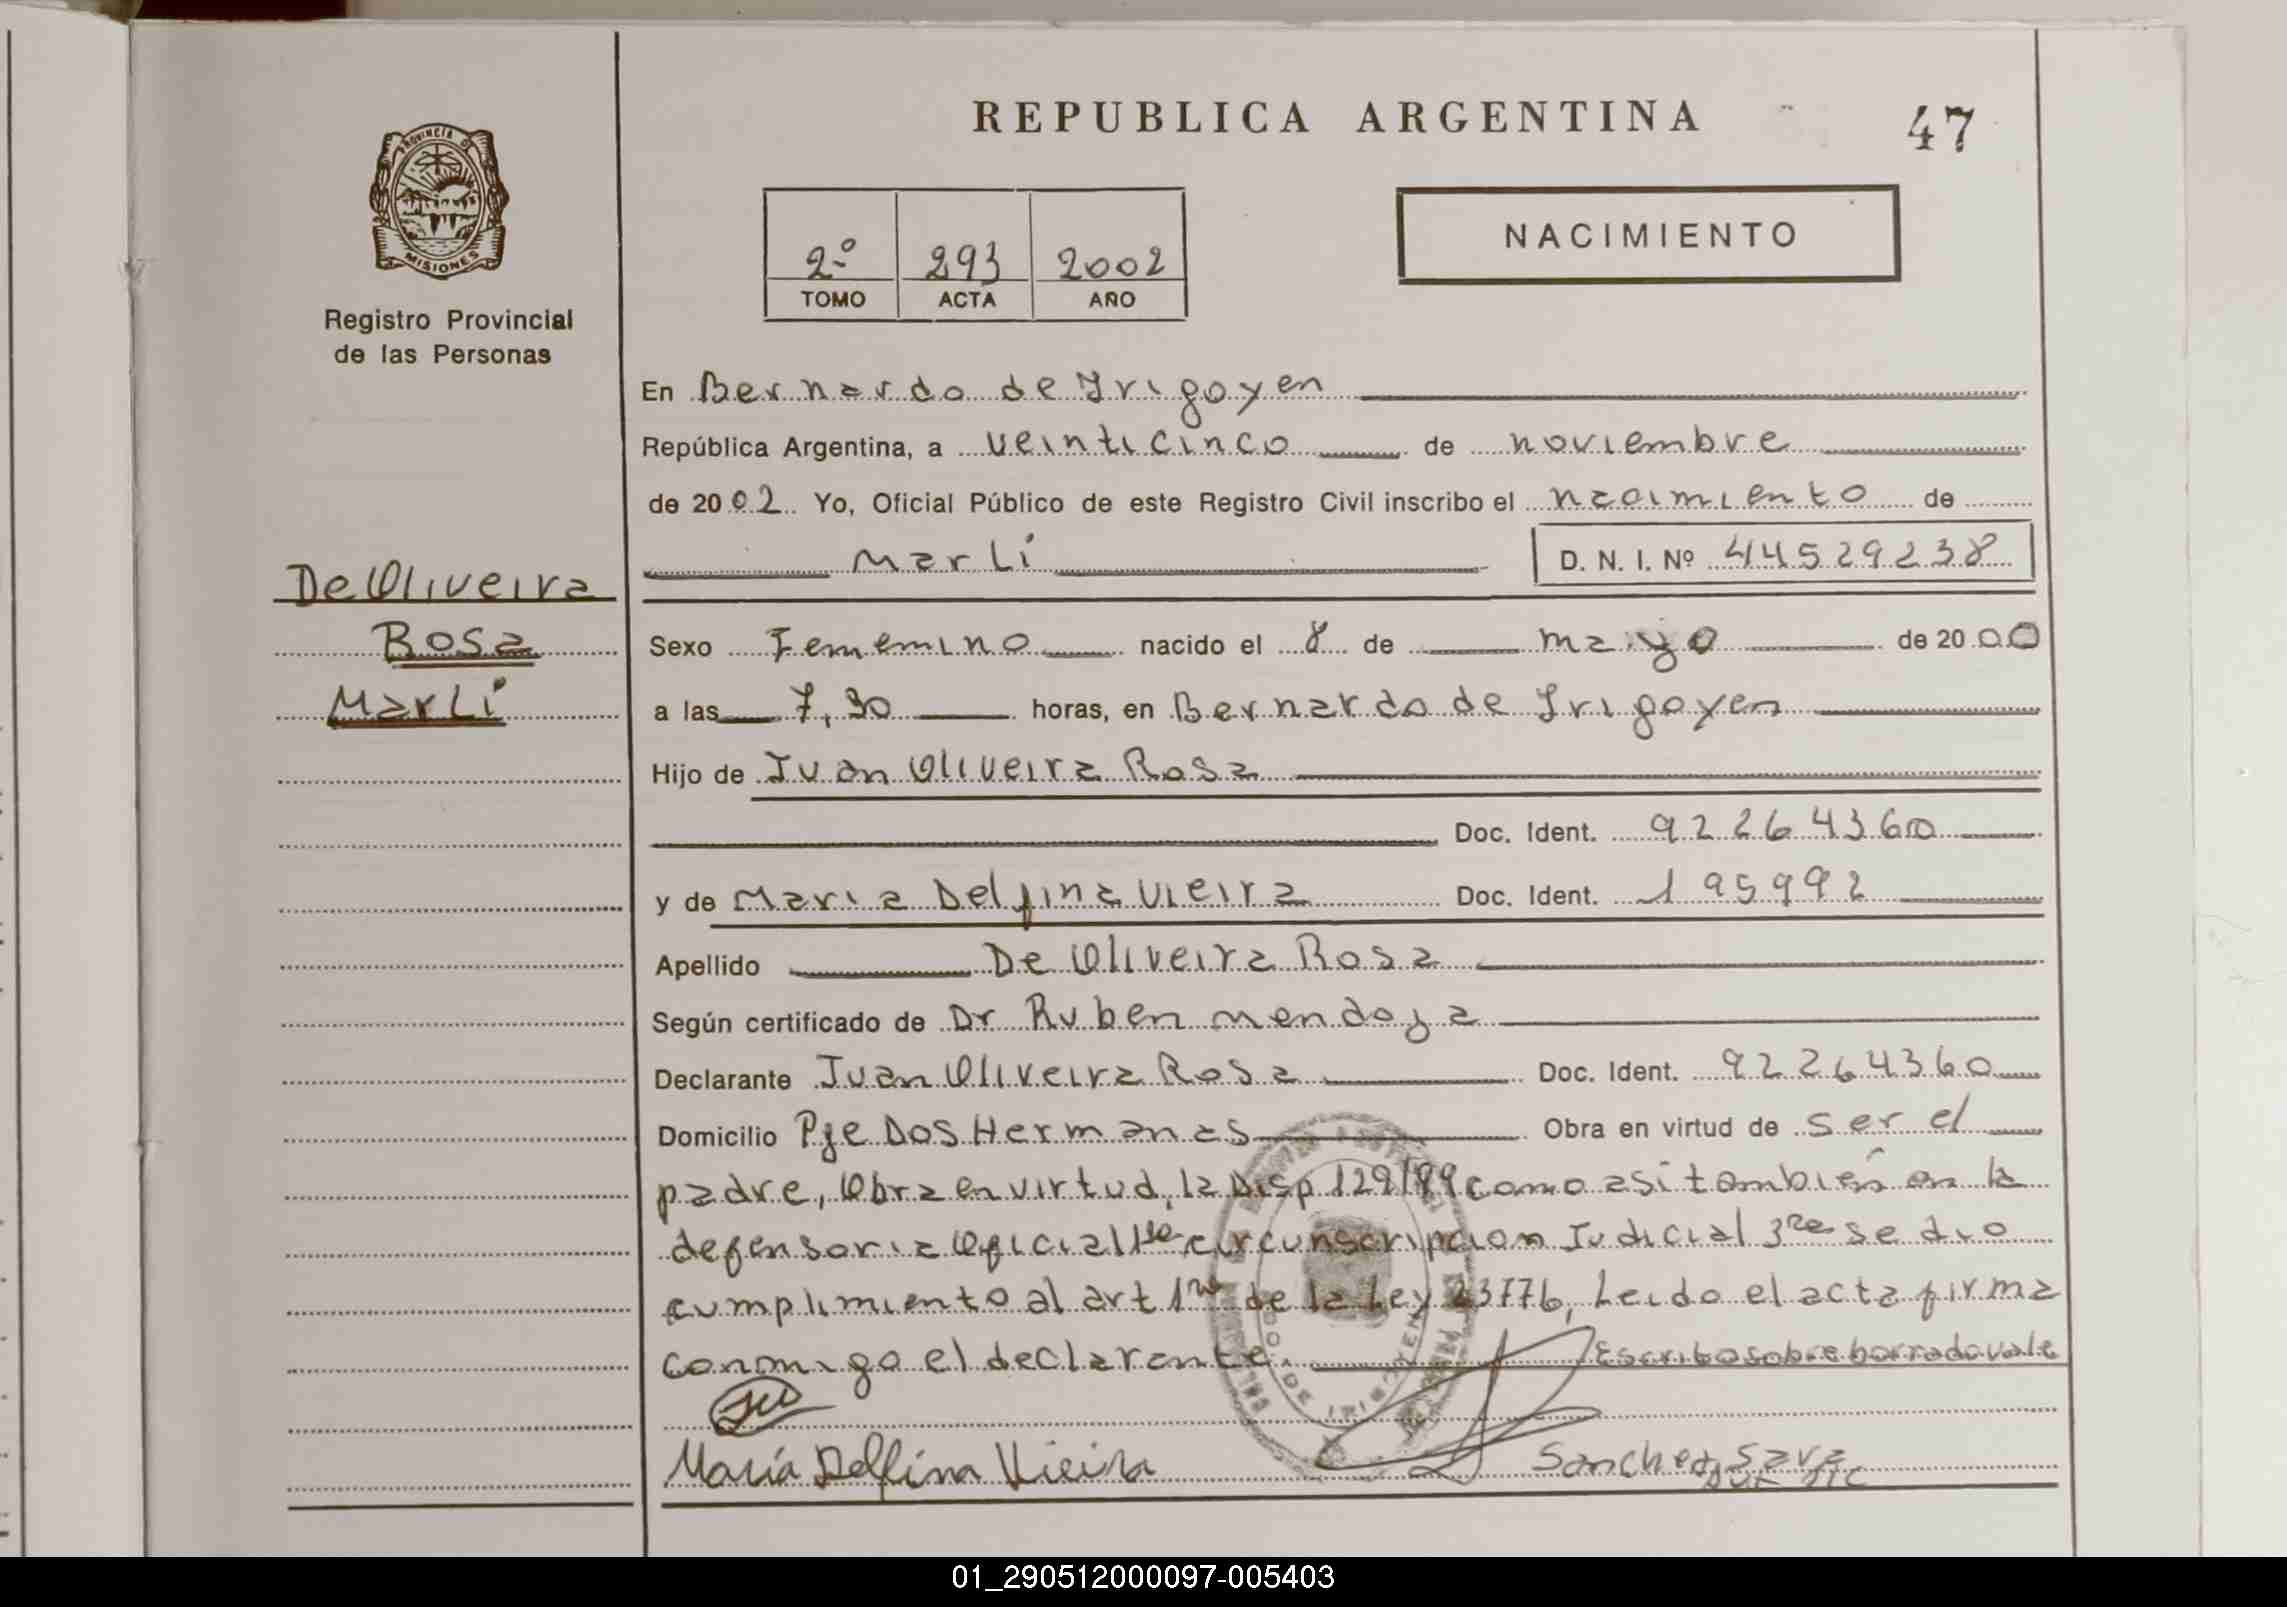 REPUBLICA ARGENTINA
47
PROVINCIA DE
MISIONES
Registro Provincial
de las Personas
2º 293 2002
TOMO ACTA AÑO
NACIMIENTO
En Bernardo de Irigoyen
República Argentina, a veinticinco de noviembre
de 2002. Yo, Oficial Público de este Registro Civil inscribo el nacimiento de
Marli D. N. I. Nº 44529238
De Oliveira
Rosa
Marli
Sexo Femenino nacido el 8 de mayo de 2000
a las 7,30 horas, en Bernardo de Irigoyen
Hijo de Juan Oliveira Rosa
Doc. Ident. 92264360
y de Maria Delfina Vieira Doc. Ident. 195992
Apellido De Oliveira Rosa
Según certificado de Dr Ruben Mendoza
Declarante Juan Oliveira Rosa Doc. Ident. 92264360
Domicilio Pje Dos Hermanas Obra en virtud de ser el
padre, Obra en virtud, la Disp 129/99 como asi tambien en la
defensoria Oficial circunscripcion Judicial 3ra se dio
cumplimiento al art 1ro de la Ley 23776, Leido el acta firma
conmigo el declarante. Escribo sobre borrado vale
María Delfina Vieira
Sanchez Sara
01_290512000097-005403